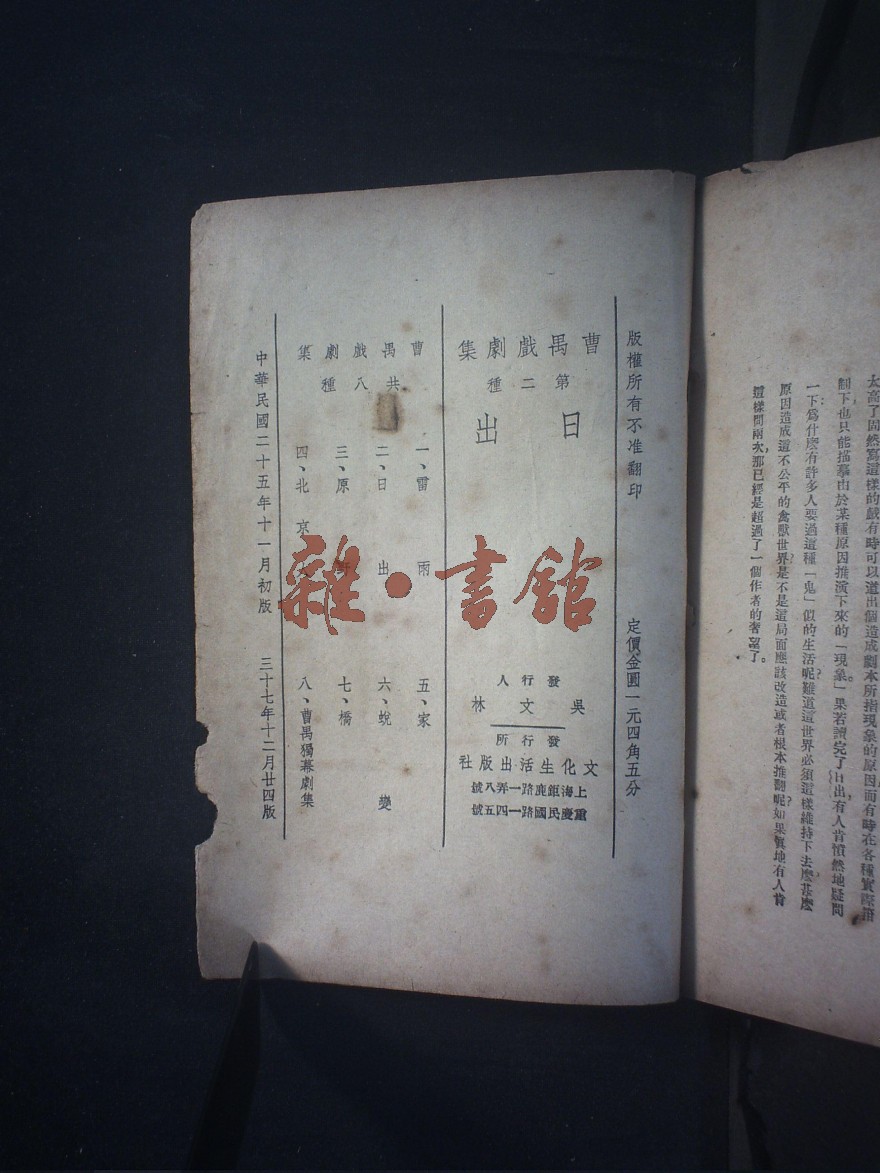 太高了固然寫這樣的戲有時可以道出個造成劇本所指現象的原因而有時在各種實際
制下也只能描摹由於某種原因推演下來的「現象」。果若讀完了日出，有人肯憤然地疑問
一下：爲什麽有許多人要過這種「鬼」似的生活呢？難道這世界必須這樣維持下去麽？甚麽
原因造成這不公平的禽獸世界？是不是這局面應該改造或者根本推翻呢？如果眞地有人肯
這樣問兩次，那已經是超過了一個作者的奢望了。
版權所有不准翻印
定價金圓一元四角五分
曹禺戲劇集
第二種
日出
發行人
吳文林
發行所
文化生活出版社
上海鉅鹿路一弄八號
重慶民國路一四五號
曹禺戲劇集
共八種
一、雷雨
二、日出
三、原
四、北京
五、家
六、蛻變
七、橋
八、曹禺獨幕劇集
中華民國二十五年十一月初版
三十七年十二月廿四版
雜·書館